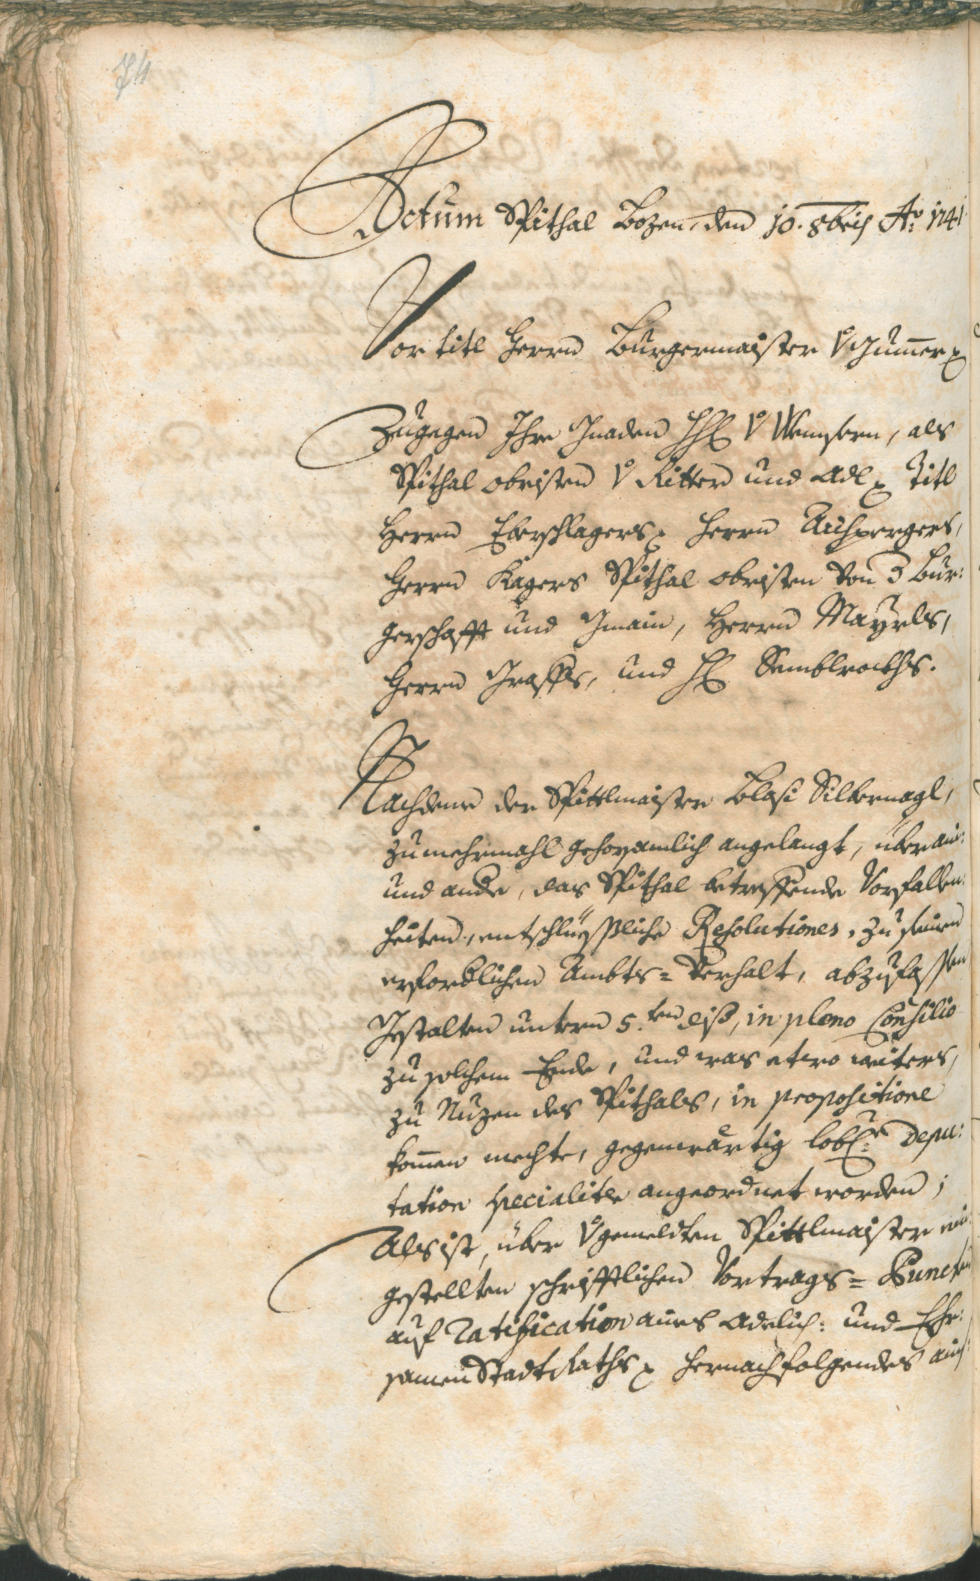 74
Actum Spithal Bozen, den 10. 8bris Ao: 1741
Vor titl Herrn Burgermaister V Gumer
Zugegen Ihro Gnaden HH V Wensern, als
Spithal obristen V Ritter und Adl Titl
Herrn Eberschlagers, Herrn Aichpergers,
Herrn Kagers Spithal obristen von d Bur:
gerschafft und Gmain, Herrn Mayrls,
Herrn Graffs, und H Semblroths.
Nachdeme der Spittlmaister Blasi Silbernagl,
zumehrmahl gehorsamlich angelangt, über ain:
und ande, das Spithal betreffende Vorfallen:
heiten, entschlüssliche Resolutiones, zu seinen
erforderlichen Ambts= Verhalt, abzufassen
Gestalten untern 5.ten diß, in pleno Consilio
zu solchem Ende, und was etwo weiters,
zu Nuzen des Spithals, in propositione
komen mechte, gegenwärtig lobl:r Depu:
tation specialiter angeordnet worden;
Als ist, über Vgemeldten Spittlmaister ein
gestellten schrifftlichen Vortrags= Puncten
auf Ratification aines Adelich: und Ehr:
samen Stadt Raths hernachfolgendes auch